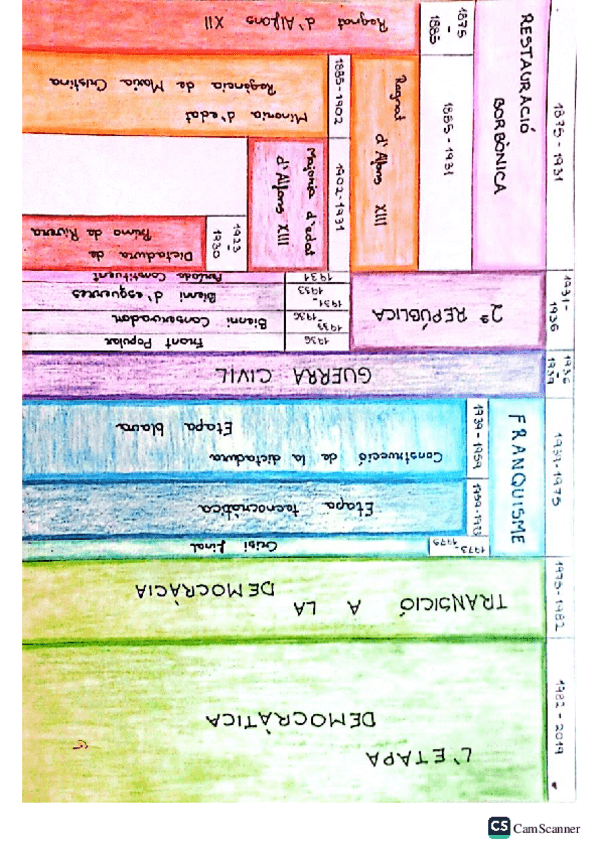 1875 - 1931
RESTAURACIÓ
BORBÒNICA
1875
-
1885
Regnat d'Alfons XII
1885 - 1931
Regnat d'Alfons XIII
1885-1902
Minoria d'edat
Regència de Maria Cristina
1902-1931
Majoria d'edat
d'Alfons XIII
1923
-
1930
Dictadura de
Primo de Rivera
1931-
1936
2ª REPÚBLICA
1931
Període Constituent
1931-
1933
Bienni d'esquerres
1933
-1936
Bienni Conservador
1936
Front Popular
1936
-
1939
GUERRA CIVIL
1939-1975
FRANQUISME
1939-1959
Construcció de la dictadura
Etapa blava
1959-1973
Etapa tecnocràtica
1973-
1975
Crisi final
1975-1982
TRANSICIÓ A LA
DEMOCRÀCIA
1982 - 2019
L'ETAPA
DEMOCRÀTICA
CS CamScanner